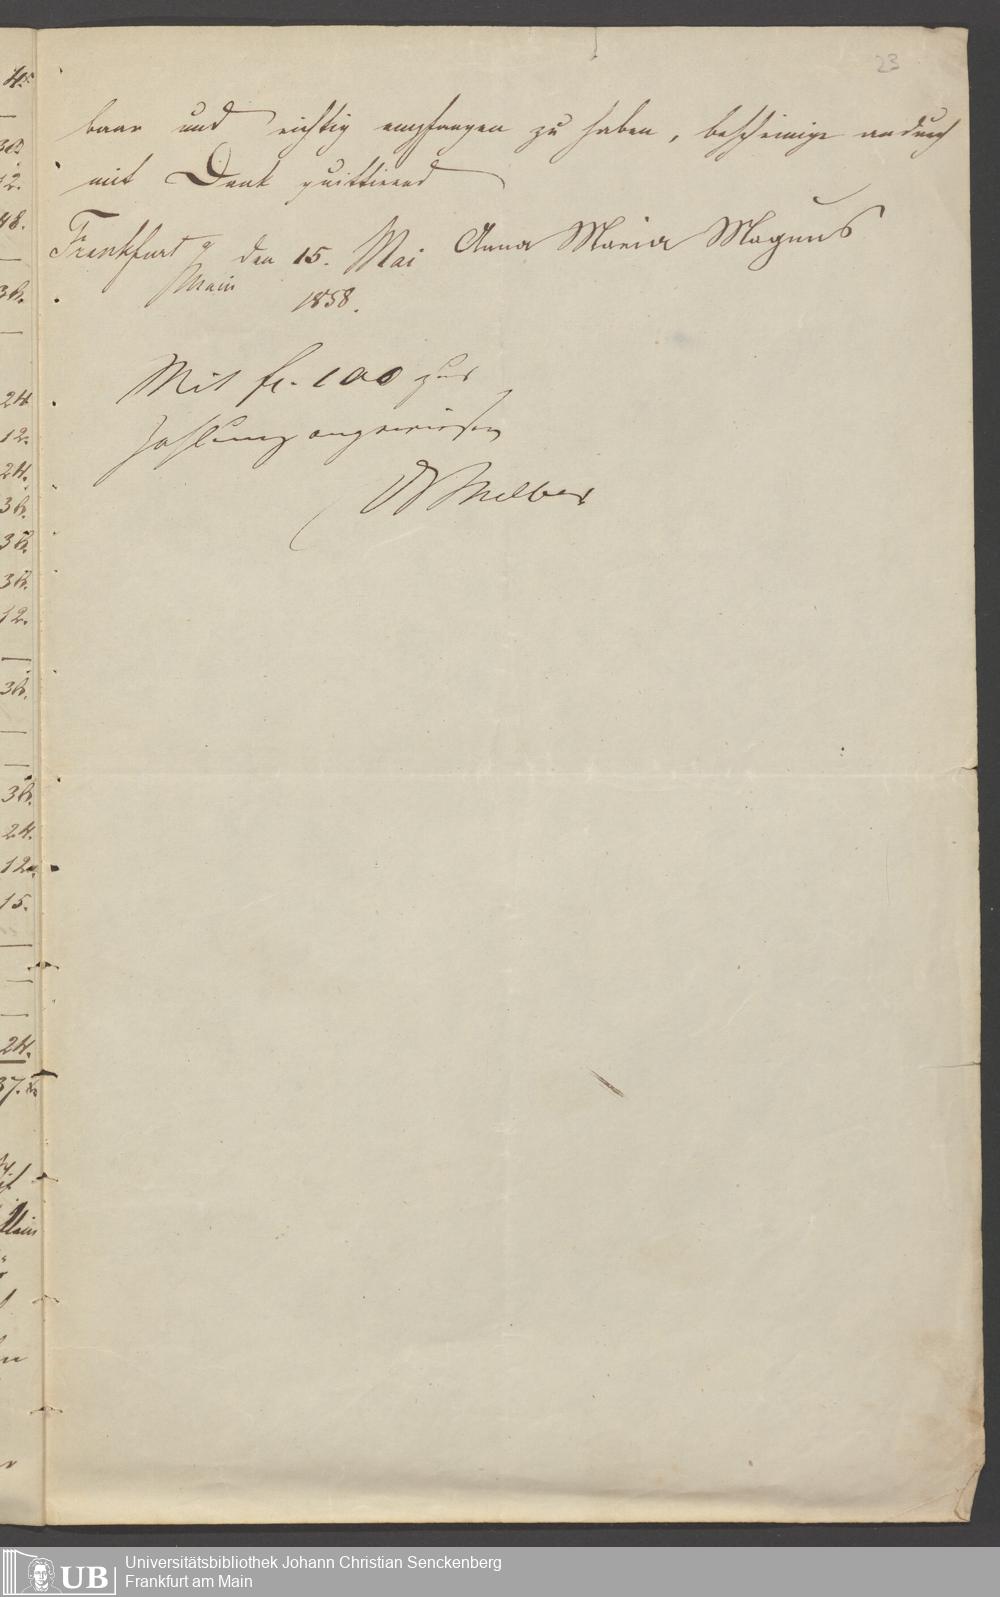 23
baar und richtig empfangen zu haben, bescheinige andurch
mit Dank quittirend
Frankfurt a/ den 15. Mai Anna Maria Magnus
Main 1858.
Mit fl. 100 zur
Zahlung angewiesen
Dr Melber
4
30
12.
48.
36.
24
12.
24.
36.
36.
36.
12.
36.
36.
24.
12.
15.
24.
37.
UB
Universitätsbibliothek Johann Christian Senckenberg
Frankfurt am Main